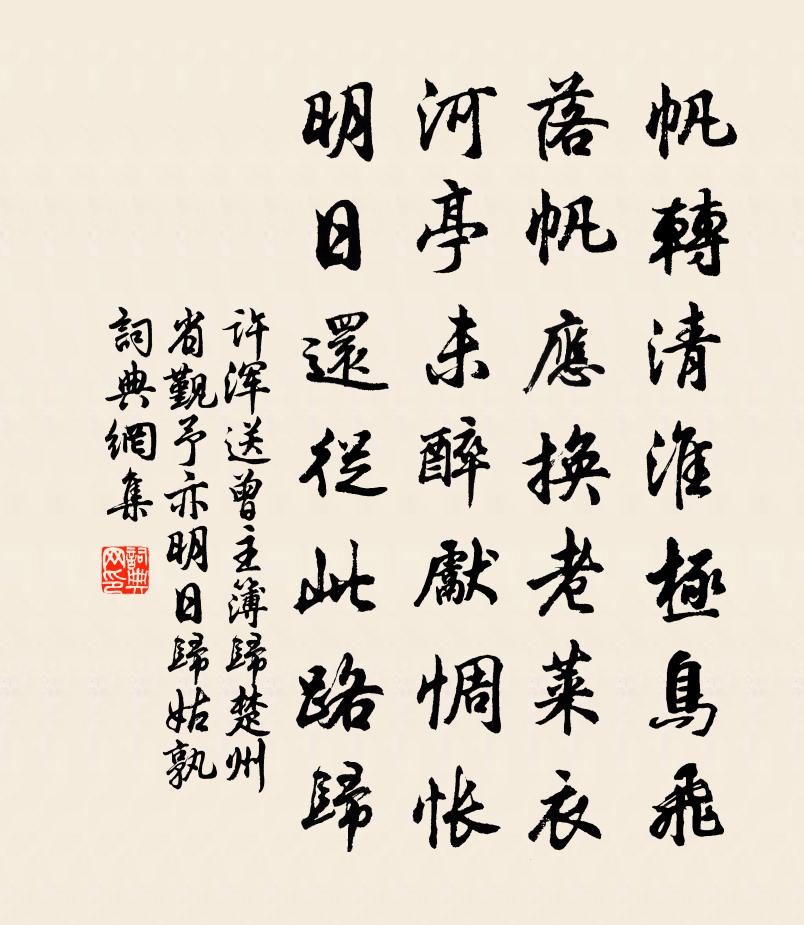 帆轉清淮極鳥飛
落帆應換老萊衣
河亭未醉獻惆怅
明日還從此路歸
许浑送曾主簿歸楚州
省覲予亦明日歸姑孰
詞典網集
詞典网印